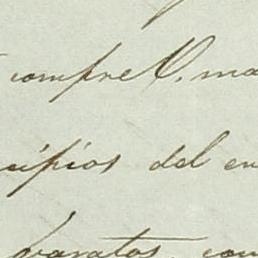 compre V. ma
cipios del en
baratos, com